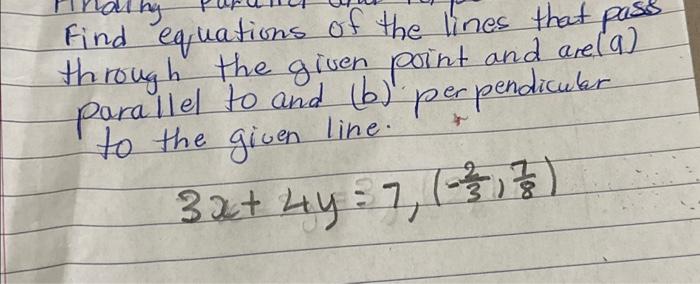 Finding
Find equations of the lines that pass
through the given point and are (a)
parallel to and (b) perpendicular
to the given line.
3x + 4y = 7, (-2/3, 7/8)